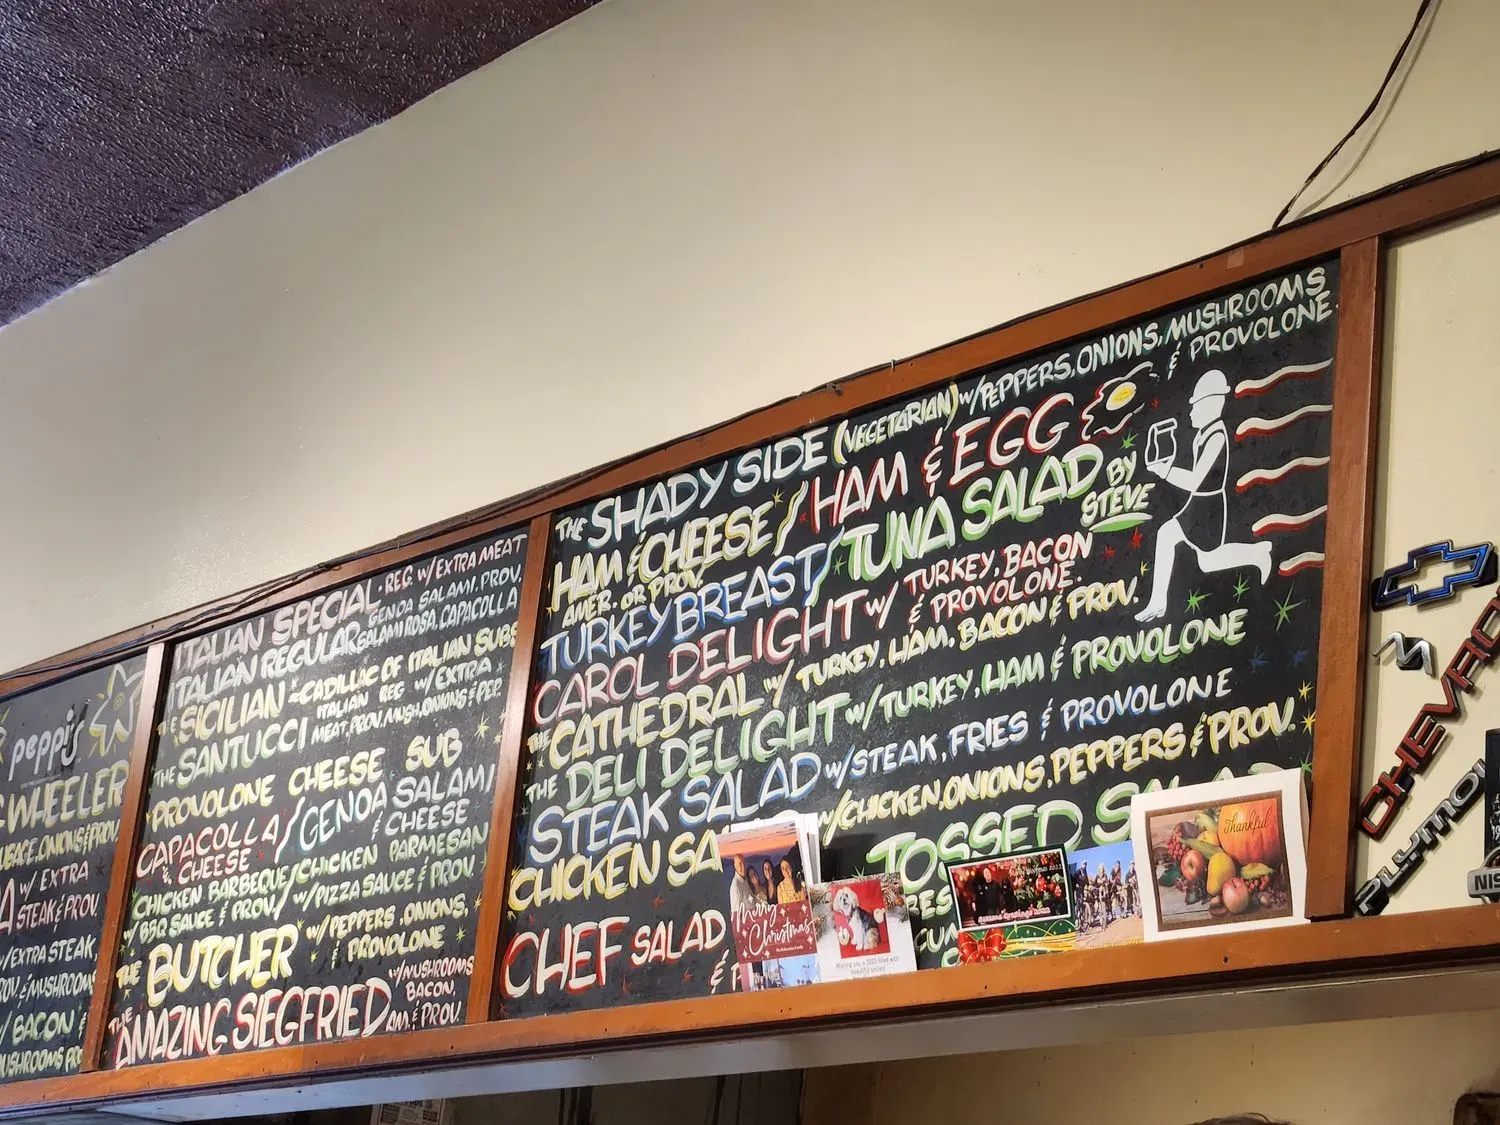 peppi's
WHEELER
ONIONS & PROV.
W/ EXTRA
STEAK & PROV.
W/ EXTRA STEAK,
& MUSHROOMS
W/ BACON &
MUSHROOMS
ITALIAN SPECIAL - REG. W/ EXTRA MEAT
ITALIAN REGULAR GENOA SALAMI, PROV.
SALAMI ROSA, CAPACOLLA
THE SICILIAN = CADILLAC OF ITALIAN SUBS
THE SANTUCCI ITALIAN REG W/ EXTRA
MEAT, PROV, MUSH, ONIONS & PEP.
PROVOLONE CHEESE SUB
CAPACOLLA / GENOA SALAMI
& CHEESE & CHEESE
CHICKEN BARBEQUE / CHICKEN PARMESAN
W/ BBQ SAUCE & PROV. W/ PIZZA SAUCE & PROV
THE BUTCHER W/ PEPPERS, ONIONS,
& PROVOLONE
THE AMAZING SIEGFRIED W/ MUSHROOMS
BACON,
AM. & PROV.
THE SHADY SIDE (VEGETARIAN) W/ PEPPERS, ONIONS, MUSHROOMS
& PROVOLONE
HAM & CHEESE / HAM & EGG
AMER. OR PROV.
TURKEY BREAST / TUNA SALAD BY
STEVE
CAROL DELIGHT W/ TURKEY, BACON
& PROVOLONE.
THE CATHEDRAL W/ TURKEY, HAM, BACON & PROV.
THE DELI DELIGHT W/ TURKEY, HAM & PROVOLONE
STEAK SALAD W/ STEAK, FRIES & PROVOLONE
CHICKEN W/ CHICKEN, ONIONS, PEPPERS & PROV.
TOSSED
CHEF SALAD
&
Merry
Christmas
Season's Greetings
Thankful
CHEVROLET
NIS